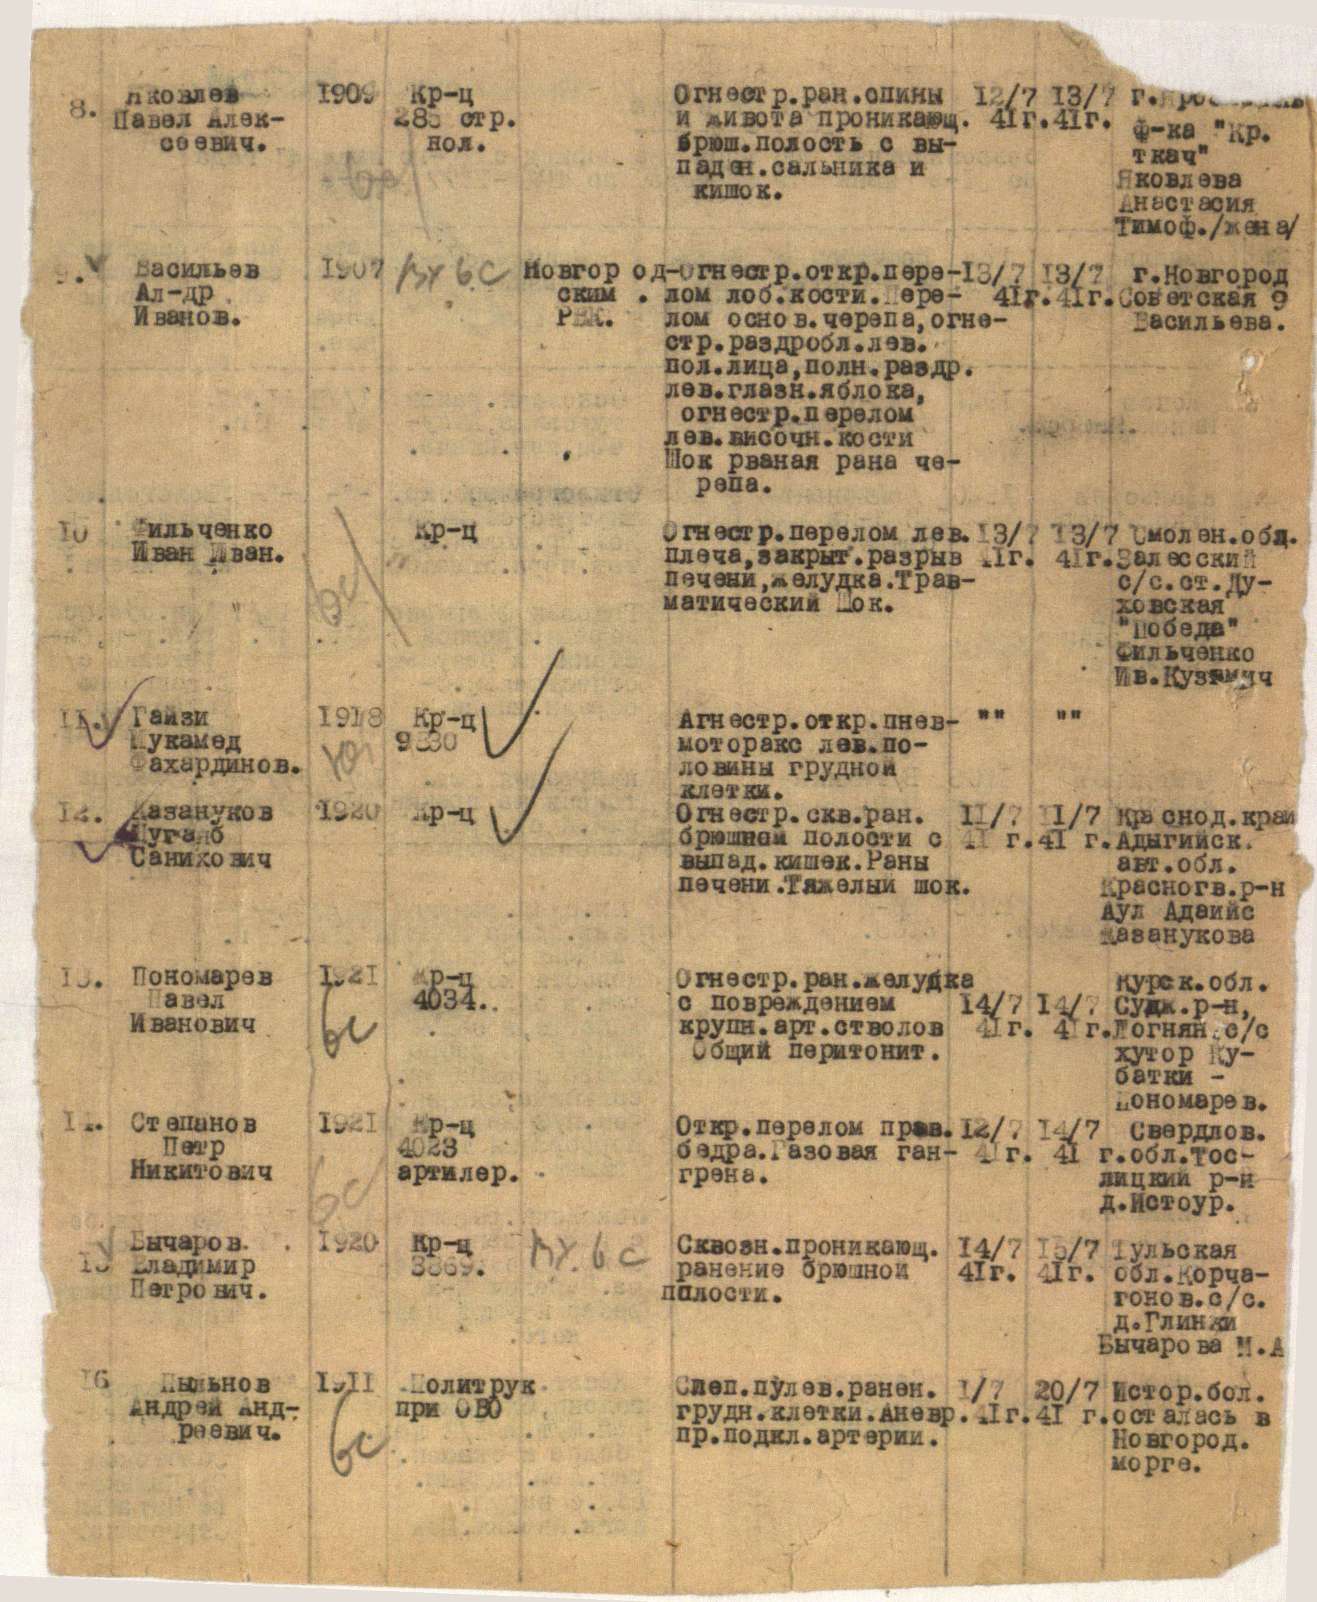 8. Яковлев 1909 Кр-ц Огнестр.ран.спины 12/7 13/7
Павел Алек- 285 стр. и живота проникающ. 41г. 41г. Ф-ка "Кр.
сеевич. пол. брюш.полость с вы- ткач"
паден.сальника и Яковлева
кишок. Анастасия
Тимоф./жена/
9. Васильев 1907 вх бс Новгород- Огнестр.откр.пере- 13/7 13/7 г.Новгород
Ал-др ским . лом лоб.кости.Пере- 41г. 41г. Советская 9
Иванов. РВК. лом основ.черепа,огне- Васильева.
стр.раздробл.лев.
пол.лица,полн.раздр.
лев.глазн.яблока,
огнестр.перелом
лев.височн.кости
Шок рваная рана че-
репа.
10 Фильченко Кр-ц Огнестр.перелом лев. 13/7 13/7 Смолен.обл.
Иван Иван. бс плеча,закрыт.разрыв 41г. 41г. Залесский
печени,желудка.Трав- с/с.ст.Ду-
матический Шок. ховская
"Победа"
Фильченко
Ив.Кузьмич
11. Гайзи 1918 Кр-ц Агнестр.откр.пнев- "" ""
Мукамед моторакс лев.по-
Фахардинов. ловины грудной
клетки.
12. Казануков 1920 Кр-ц Огнестр.скв.ран. 11/7 11/7 Краснод.край
брюшной полости с 41 г. 41 г. Адыгийск.
Санихович выпад.кишек.Раны авт.обл.
печени.Тяжелый шок. Красногв.р-н
Аул Адаийс
Казанукова
13. Пономарев 1921 Кр-ц Огнестр.ран.желудка Курск.обл.
Павел бс 4034.. с повреждением 14/7 14/7 Судж.р-н,
Иванович крупн.арт.стволов 41г. 41г. Логнян.с/с
Общий перитонит. хутор Ку-
батки -
Пономарев.
14. Степанов 1921 Кр-ц Откр.перелом прав. 12/7 14/7 Свердлов.
Петр 4023 бедра.Газовая ган- 41г. 41 г. обл.Тос-
Никитович бс артилер. грена. лицкий р-н
д.Истоур.
15 Бычаров. 1920 Кр-ц вх. бс Сквозн.проникающ. 14/7 15/7 Тульская
Владимир 3869. ранение брюшной 41г. 41г. обл.Корча-
Петрович. полости. гонов.с/с.
д.Глинки
Бычарова М.А
16 Пыльнов 1911 Политрук Слеп.пулев.ранен. 1/7 20/7 Истор.бол.
Андрей Анд- бс при ОВО грудн.клетки.Аневр. 41г. 41 г. осталась в
реевич. пр.подкл.артерии. Новгород.
морге.